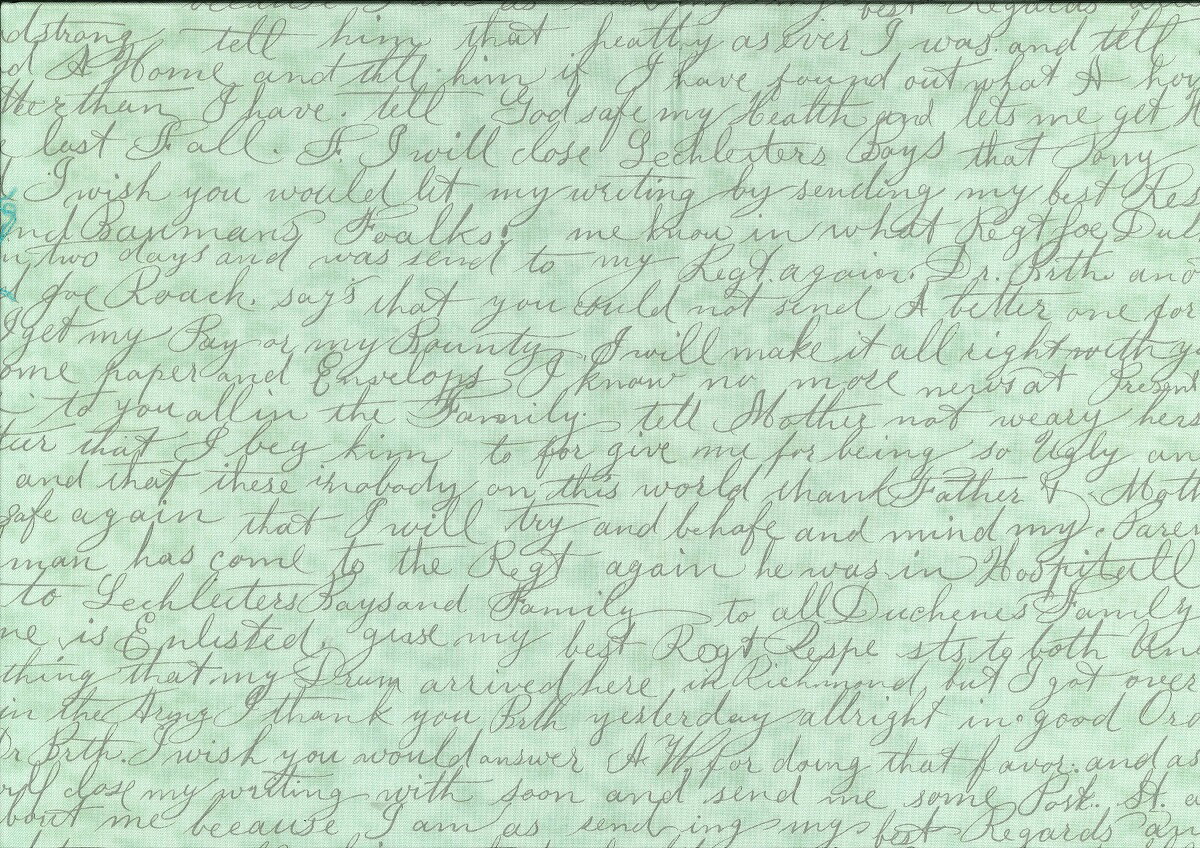 because I am as sending my best Regards and
dstrong tell him that heathy as ever I was and tell
d A Home and tell him if I have found out what A hou
tter than I have. tell God safe my Health and lets me get H
e last Fall. F. I will close Lechleiters Boys that Pony
I wish you would let my writing by sending my best Res
nd Baumans Foalks. me know in what Regt Joe Duc
n two days and was send to my Regt. again. Dr. Brth and
d Joe Roach. say's that you could not send A better one for
I get my Pay or my Bounty. I will make it all right with yo
ome paper and Envelops I know no more news at Present
to you all in the Family. tell Mother not weary hers
ter that I beg him to for give me for being so Ugly an
and that there is nobody on this world thank Father & Moth
safe again that I will try and behafe and mind my Paren
man has come to the Regt again he was in Hospitall
to Lechleiters Boys and Family to all Duchenes Family
ne is Enlisted. give my best Regt Respe sts to both Unc
thing that my Drum arrived here in Richmond, but I got over
in the Army I thank you Brth yesterday allright in good Ord
Dr Brth. I wish you would answer A.W. for doing that favor. and as
will close my writing with soon and send me some Post. St. a
bout me beecause I am as send ing my best Regards an